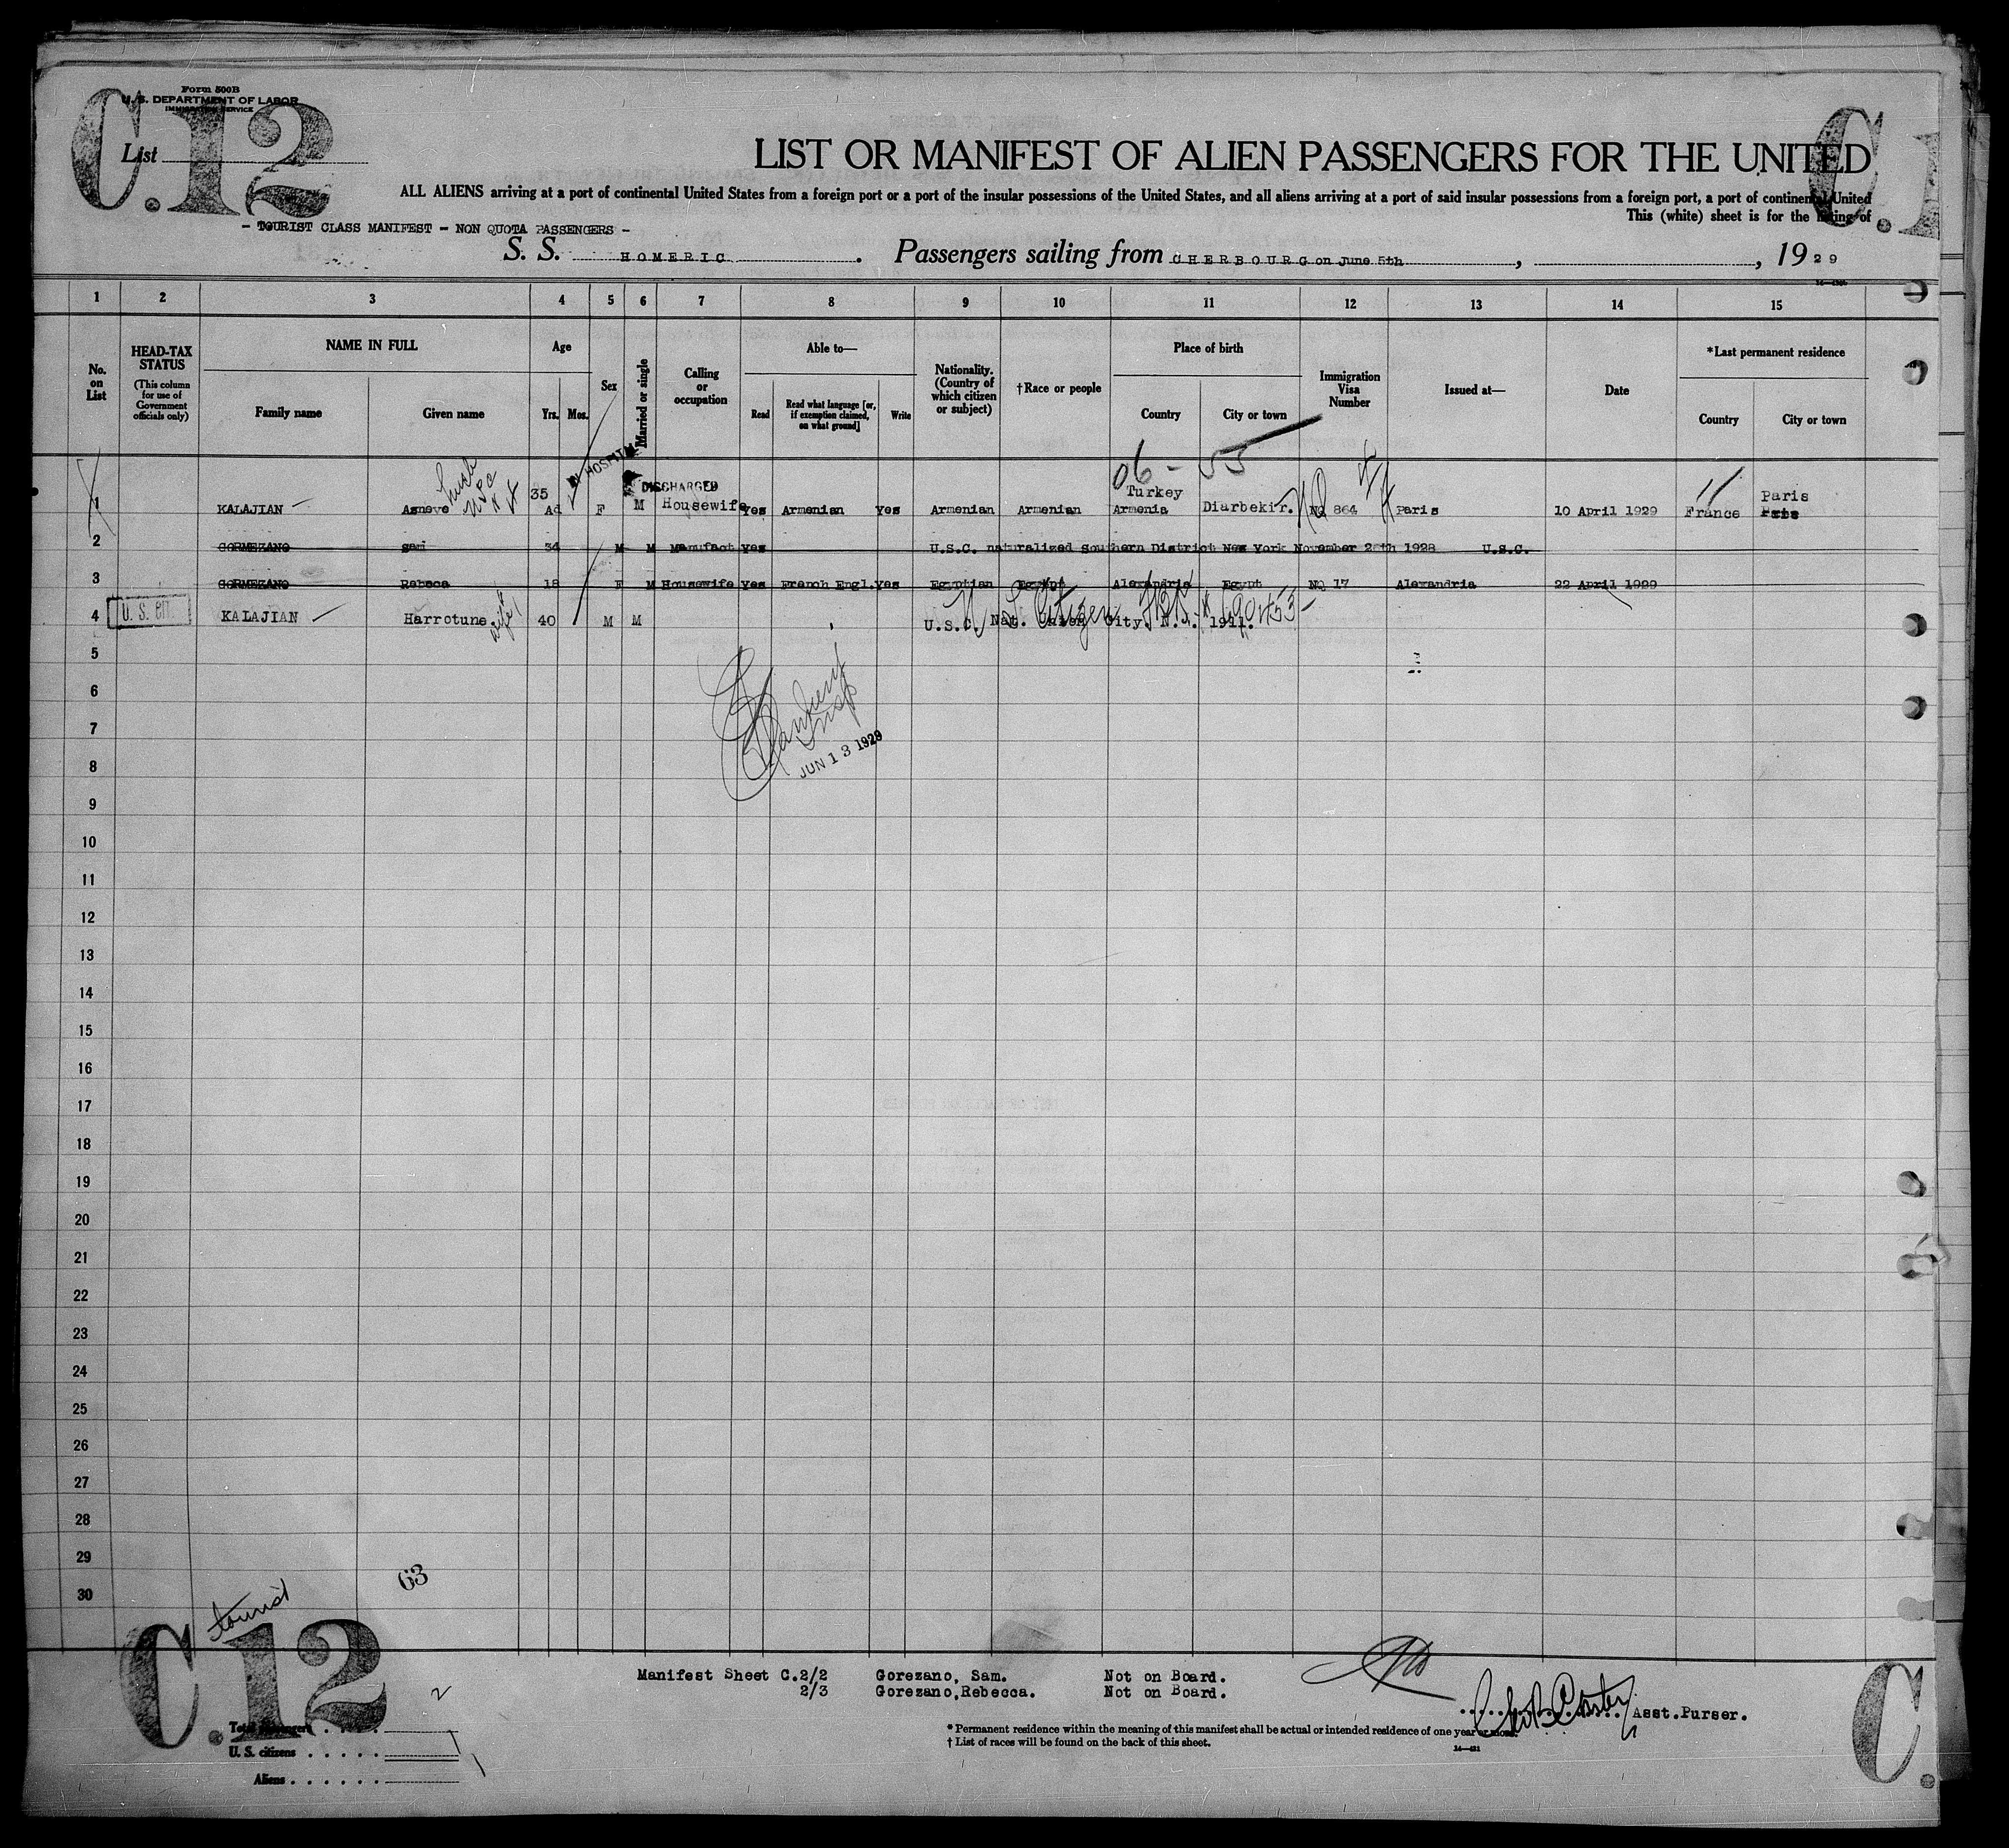 Form 500B
U. S. DEPARTMENT OF LABOR
IMMIGRATION SERVICE
C.12
C.1
List
LIST OR MANIFEST OF ALIEN PASSENGERS FOR THE UNITED
ALL ALIENS arriving at a port of continental United States from a foreign port or a port of the insular possessions of the United States, and all aliens arriving at a port of said insular possessions from a foreign port, a port of continental United
This (white) sheet is for the listing of
- TOURIST CLASS MANIFEST - NON QUOTA PASSENGERS -
S. S. HOMERIC. Passengers sailing from CHERBOURG on June 5th, , 1929
1 2 3 4 5 6 7 8 9 10 11 12 13 14 15
No. on List
HEAD-TAX STATUS (This column for use of Government officials only)
NAME IN FULL
Family name Given name
Age
Yrs. Mos.
Sex
Married or single
Calling or occupation
Able to—
Read Read what language [or, if exemption claimed, on what ground] Write
Nationality. (Country of which citizen or subject)
†Race or people
Place of birth
Country City or town
Immigration Visa Number
Issued at—
Date
*Last permanent residence
Country City or town
IN HOSPITAL
DISCHARGED
06 - 55
35 Turkey 11 Paris
1 KALAJIAN Ad F M Housewife Yes Armenian Yes Armenian Armenian Armenia Diarbekir. NQ 864 Paris 10 April 1929 France Paris
2 GORMEZANO Sami 34 M M Manufact Yes U.S.C. naturalized Southern District New York November 2 th 1928 U.S.C.
3 GORMEZANO Rebeca 18 F M Housewife Yes French Engl. Yes Egyptian Egypt Alexandria Egypt NQ 17 Alexandria 22 April 1929
4 U. S. CIT. KALAJIAN Harrotune wife 1 40 M M U.S.C. Nat. Union City. N.J. 1921.
Citizen
5
6
7
8
JUN 13 1929
9
10
11
12
13
14
15
16
17
18
19
20
21
22
23
24
25
26
27
28
29
30
63
tourist
C.12
C.
Manifest Sheet C.2/2 Gorezano, Sam. Not on Board.
2/3 Gorezano,Rebecca. Not on Board.
Asst.Purser.
Total passengers 2
U. S. citizens 1
Aliens 1
* Permanent residence within the meaning of this manifest shall be actual or intended residence of one year or more.
† List of races will be found on the back of this sheet.